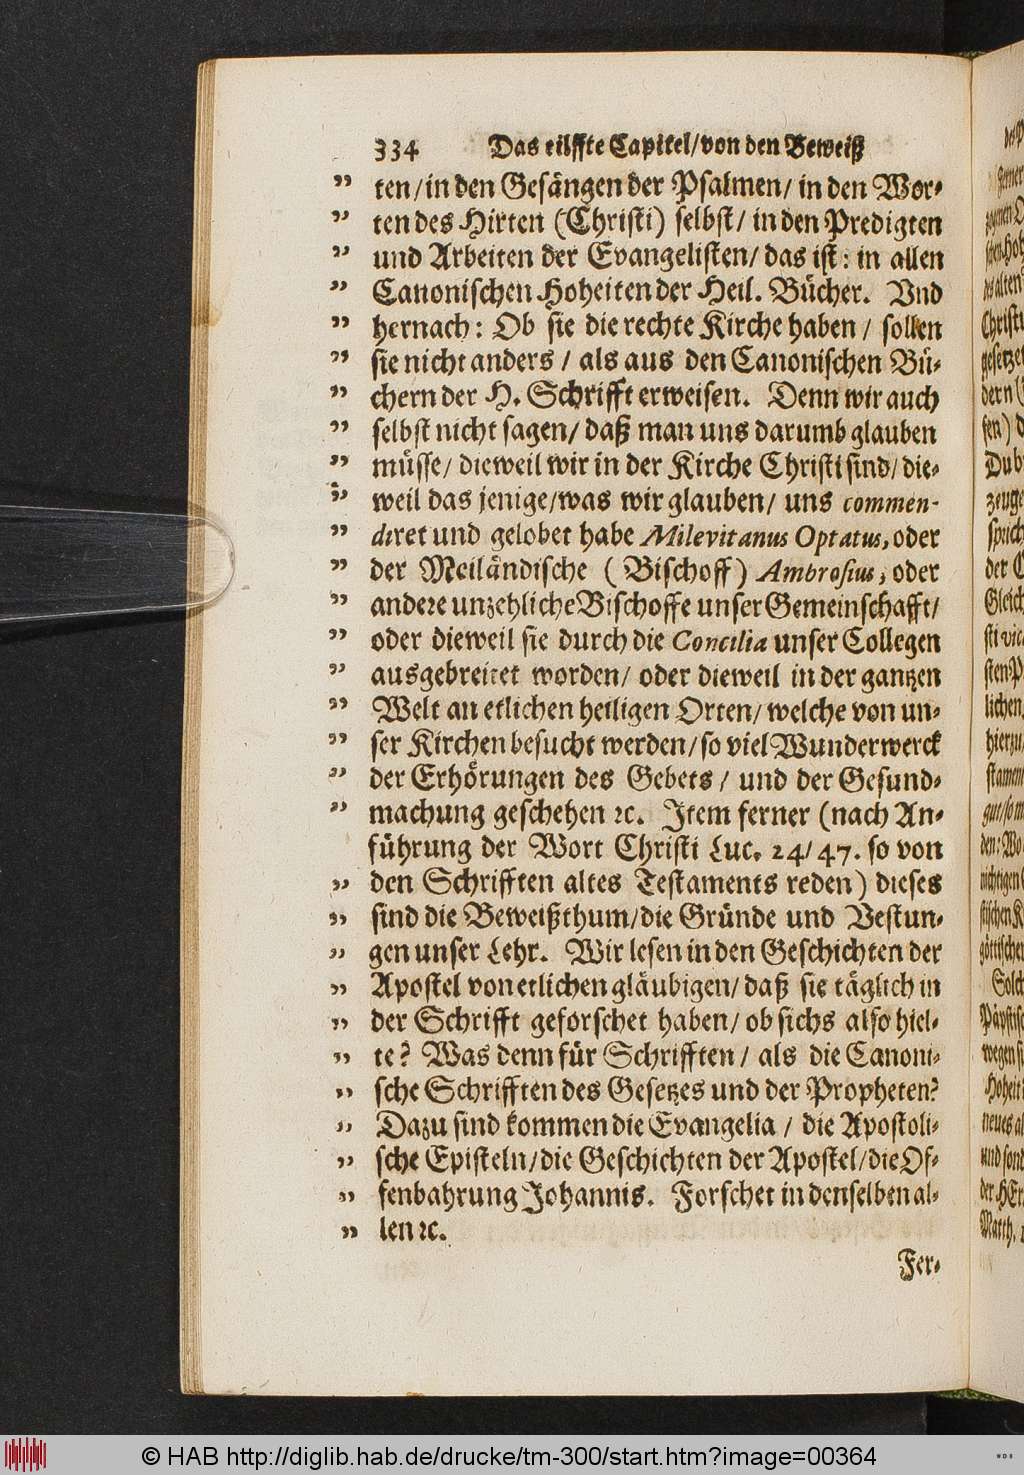 334 Das eilffte Capitel/von den Beweiß
„ ten/in den Gesängen der Psalmen/ in den Wor-
„ ten des Hirten (Christi) selbst/ in den Predigten
„ und Arbeiten der Evangelisten/ das ist: in allen
„ Canonischen Hoheiten der Heil. Bücher. Vnd
„ hernach: Ob sie die rechte Kirche haben / sollen
„ sie nicht anders / als aus den Canonischen Bü-
„ chern der H. Schrifft erweisen. Denn wir auch
„ selbst nicht sagen/ daß man uns darumb glauben
„ müsse/ dieweil wir in der Kirche Christi sind/ die-
„ weil das jenige/was wir glauben/ uns commen-
„ diret und gelobet habe Milevitanus Optatus, oder
„ der Meiländische (Bischoff) Ambrosius, oder
„ andere unzehliche Bischoffe unser Gemeinschafft/
„ oder dieweil sie durch die Concilia unser Collegen
„ ausgebreitet worden/ oder dieweil in der gantzen
„ Welt an etlichen heiligen Orten/ welche von un-
„ ser Kirchen besucht werden/ so viel Wunderwerck
„ der Erhörungen des Gebets / und der Gesund-
„ machung geschehen ꝛc. Item ferner (nach An-
führung der Wort Christi Luc. 24/ 47. so von
„ den Schrifften altes Testaments reden) dieses
„ sind die Beweißthum/die Gründe und Vestun-
„ gen unser Lehr. Wir lesen in den Geschichten der
„ Apostel von etlichen gläubigen/ daß sie täglich in
„ der Schrifft geforschet haben/ ob sichs also hiel-
„ te? Was denn für Schrifften / als die Canoni-
„ sche Schrifften des Gesetzes und der Propheten?
„ Dazu sind kommen die Evangelia / die Apostoli-
„ sche Episteln/die Geschichten der Apostel/die Of-
„ fenbahrung Johannis. Forschet in denselben al-
„ len ꝛc.
Fer-
© HAB http://diglib.hab.de/drucke/tm-300/start.htm?image=00364